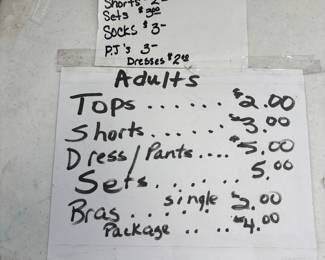 Shorts 2-
Sets $3.00
Socks $3-
P.J's 3-
Dresses $2.00
Adults
Tops ...... $2.00
Shorts...... $3.00
Dress/Pants.... $5.00
Sets....... 5.00
Bras ...... single $2.00
Package .. .. $4.00